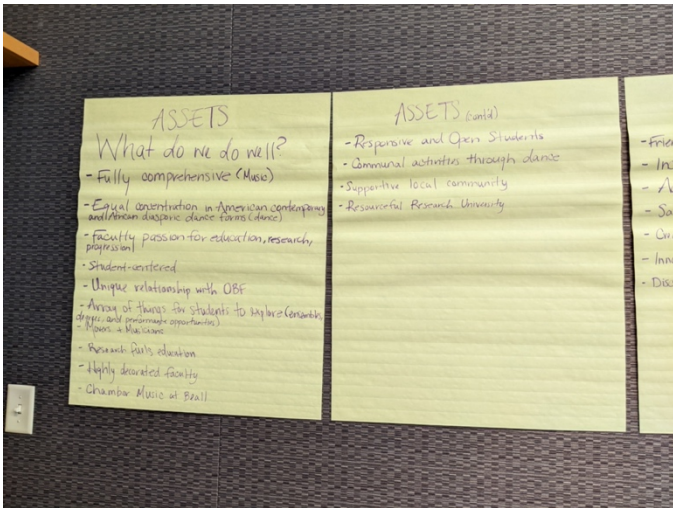 ASSETS
What do we do well?
- Fully comprehensive (Music)
- Equal concentration in American contemporary
and African diasporic dance forms (dance)
- Faculty passion for education, research,
progression
- Student-centered
- Unique relationship with OBF
- Array of things for students to explore (ensembles,
degrees, and performance opportunities)
- Movers + Musicians
- Research fuels education
- Highly decorated faculty
- Chamber Music at Beall
ASSETS (cont'd)
- Responsive and Open Students
- Communal activities through dance
- Supportive local community
- Resourceful Research University
- Frie
- In
- A
- So
- Inn
- Dis